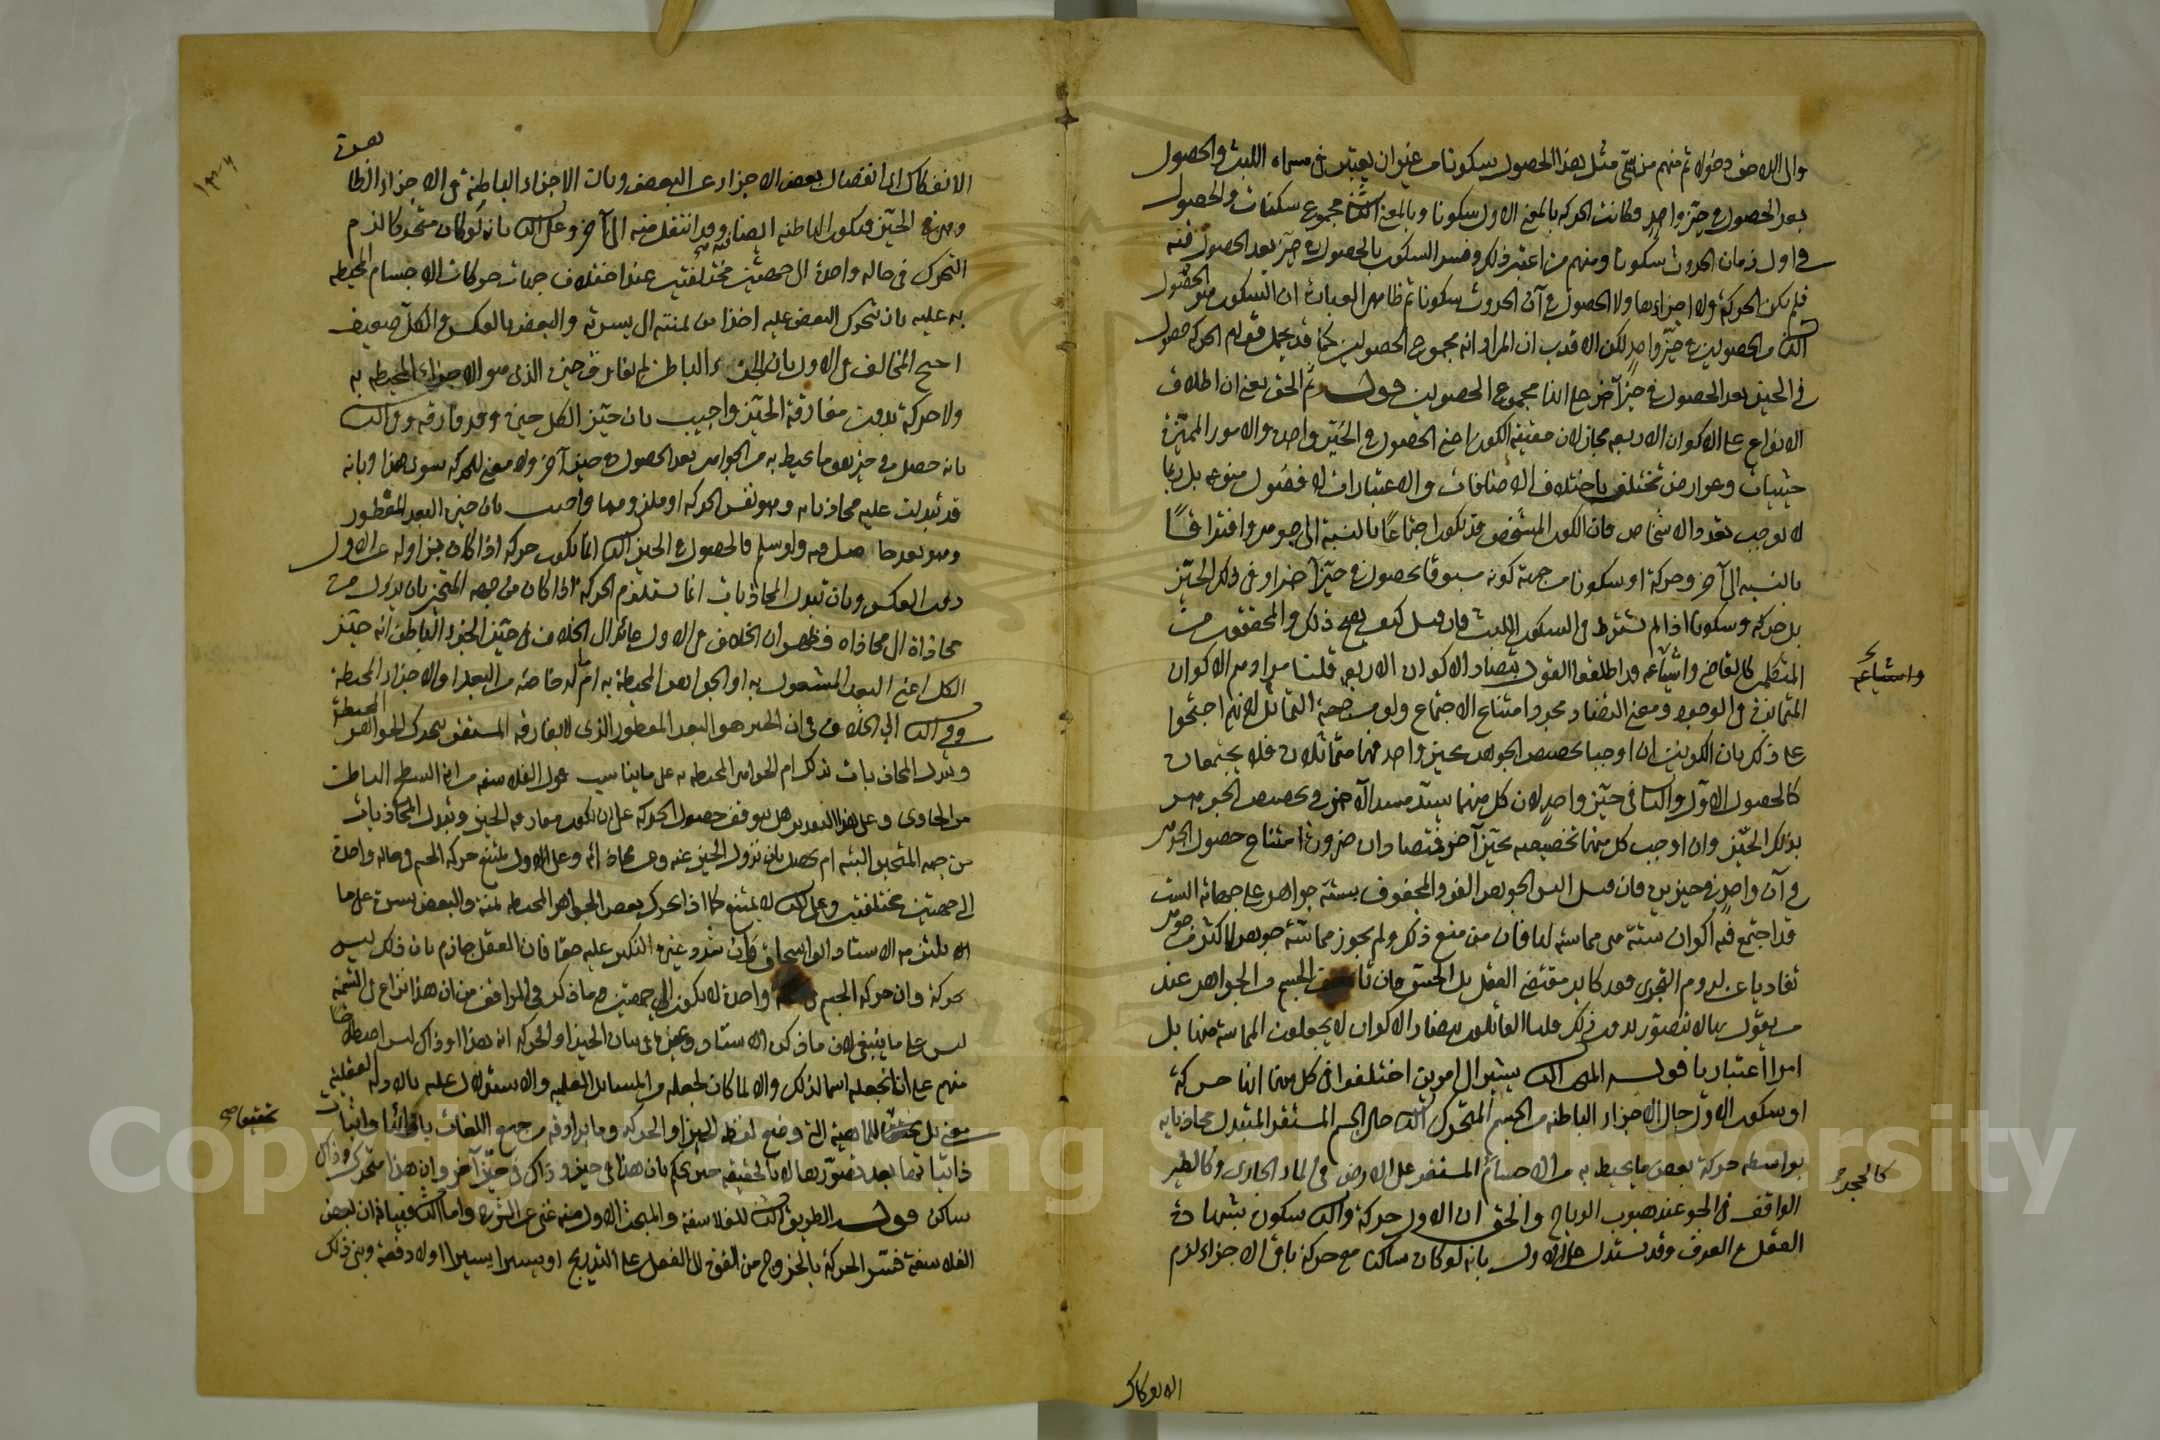 والى اللاحق دخولا ثم منهم من سمى مثل هذا الحصول سكونا من غير ان يعتبر في مسماه اللبث والحصول
بعد الحصول في حيز واحد فكانت الحركة بالمعنى الاول سكونا وبالمعنى الثاني مجموع سكنات والحصول
في اول زمان الحدوث سكونا ومنهم من اعتبر ذلك وفسر السكون بالحصول في حيز بعد الحصول فيه
فلم يكن الحركة ولا اجزاءها ولا الحصول في آن الحدوث سكونا ثم ظاهر العبارة ان السكون هو الحصول
الثاني من الحصولين في حيز واحد لكن الاقرب ان المراد انه مجموع الحصولين كما قد يحمل قولهم الحركة حصول
في الحيز بعد الحصول في حيز آخر على انها مجموع الحصولين قوله ثم الحق يعني ان اطلاق
الانواع على الاكوان الاربعة مجاز لان حقيقة الكون اعني الحصول في الحيز واحدة والامور المميزة
حيثيات وعوارض تختلف باختلاف الاضافات والاعتبارات لا فصول منوعة بل ربما
لا توجب تعدد الاشخاص فان الكون المشخص قد يكون اجتماعا بالنسبة الى جوهر وافتراقا
بالنسبة الى آخر وحركة او سكونا من جهة كونه مسبوقا بحصول في حيز آخر او في ذلك الحيز
بل حركة وسكونا اذا لم يشترط في السكون اللبث فان قيل كيف يصح ذلك والمحققون من
المتكلمين كالقاضي واشياعه قد اطلقوا القول بتضاد الاكوان الاربعة قلنا مرادهم الاكوان
واشياعه
المتمايزة في الوجود ومعنى التضاد مجرد امتناع الاجتماع ولو من جهة التماثل لانهم احتجوا
على ذلك بان الكونين ان اوجبا تخصيص الجوهر بحيز واحد فهما متماثلان فلا يجتمعان
كالحصول الاول والثاني في حيز واحد لان كل منهما يسد مسد الآخر في تخصيص الجوهر
بذلك الحيز وان اوجب كل منهما تخصيصه بحيز آخر فتضادان ضرورة امتناع حصول الجوهر
في آن واحد في حيزين فان قيل اليس الجوهر الفرد المحفوف بستة جواهر على جهاته الست
قد اجتمع فيه اكوان ستة هي مماسته لها فان من منع ذلك ولم يجوز مماسة جوهر لاكثر من جوهر
تفاديا عن لزوم التجزي فقد كابر مقتضى العقل بل الحس فان تألف الجسم من الجواهر عند
من يقول بها لا يتصور بدون ذلك قلنا القائلون بتضاد الاكوان لا يجعلون المماسة منها بل
امرا اعتباريا قوله المبحث الثاني يشير الى امرين اختلفوا في كل منهما انها حركة
او سكون الاول حال الاجزاء الباطنة من الجسم المتحرك الثاني حال الجسم المستقر المتبدل محاذياته
بواسطة حركة بعض ما يحيط به من الاجسام المستقر على الارض في الماء الجاري وكالطير
كالحجر
الواقف في الجو عند هبوب الرياح والحق ان الاول حركة والثاني سكون بشهادة
العقل والعرف وقد يستدل على الاول بانه لو كان ساكنا مع حركة باقي الاجزاء لزم
الانفكاك
الانفكاك اي انفصال بعض الاجزاء عن البعض وبان الاجزاء الباطنة في الاجزاء الظا
وهي في الحيز فيكون الباطنة ايضا فيه وقد انتقل منه الى آخر وعلى الثاني بانه لو كان متحركا لزم
التحرك في حالة واحدة الى جهتين مختلفتين عند اختلاف جهات حركات الاجسام المحيطة
به عليه بان تتحرك البعض عليه اخذا من يمنته الى يسرته والبعض بالعكس والكل ضعيف
احتج المخالف في الاول بان الجزء الباطن لم يفارق حيزه الذي هو الاجزاء المحيطة به
ولا حركة بدون مفارقة الحيز واجيب بان حيز الكل حيزه وقد فارقه وفي الثاني
بانه حصل في حيز هو ما يحيط به من الجواهر بعد الحصول في حيز آخر ولا معنى للحركة سوى هذا وبانه
قد تبدلت عليه محاذياته وهو نفس الحركة او ملزومها واجيب بان حيزه البعد المفطور
وهو بعد حاصل فيه ولو سلم فالحصول في الحيز الثاني انما يكون حركة اذا كان بزواله عن الاول
دون العكس وبان تبدل المحاذيات انما يستلزم الحركة اذا كان من جهة المتحيز بان يزول من
محاذاة الى محاذاة فظهر ان الخلاف في الاول عائد الى الخلاف في حيز الجزء الباطن انه حيز
الكل اعني البعد المشغول به او الجواهر المحيطة به ام له خاصة من البعد او الاجزاء المحيطة
وفي الثاني الى الخلاف في ان الحيز هو البعد المفطور الذي لا يفارقه المستقر بتحرك الجواهر المحيطة
وتبدل المحاذيات بذلك ام الجواهر المحيطة به على ما يناسب قول الفلاسفة من انه السطح الباطن
من الحاوي وعلى هذا التقدير هل يتوقف حصول الحركة على ان تكون مفارقة الحيز وتبدل المحاذيات
من جهة المتحيز البتة ام يحصل بان يزول الحيز عنه وعن محاذاته وعلى الاول يمتنع حركة الجسم في حالة واحدة
الى جهتين مختلفتين وعلى الثاني لا يمتنع كما اذا تحرك بعض الجواهر المحيطة يمنة والبعض يسرة على ما
التزمه الاستاد ابو اسحاق وان شدد غيره النكير عليه حقا فان العقل جازم بان ذلك ليس
بحركة وان حركة الجسم في حالة واحدة لا يكون الى جهتين وما ذكر في المواقف من ان هذا نزاع في التسمية
ليس على ما ينبغي لان ما ذكره الاستاد وغيره في بيان الحيز او الحركة انه هذا او ذاك ليس اصطلاحا
منهم على انا نجعله اسما لذلك والا لما كان لجعله من المسائل العلمية والاستدلال عليه بالادلة العقلية
معنى بل تحقيق للماهية التي وضع لفظ الحيز او الحركة وما يرادفه من جميع اللغات بازائها واثبات
تحقيقا صح
ذاتياتها بعد تصورها لا بالحقيقة حتى يحكم بان هذا في حيز وذاك في حيز آخر وان هذا متحرك وذاك
ساكن قوله الطريق الثاني للفلاسفة والمبحث الاول منه غني عن الشرح واما الثاني فبيانه ان بعض
الفلاسفة فسر الحركة بالخروج من القوة الى الفعل على التدريج او يسيرا يسيرا او لا دفعة وبنى ذلك